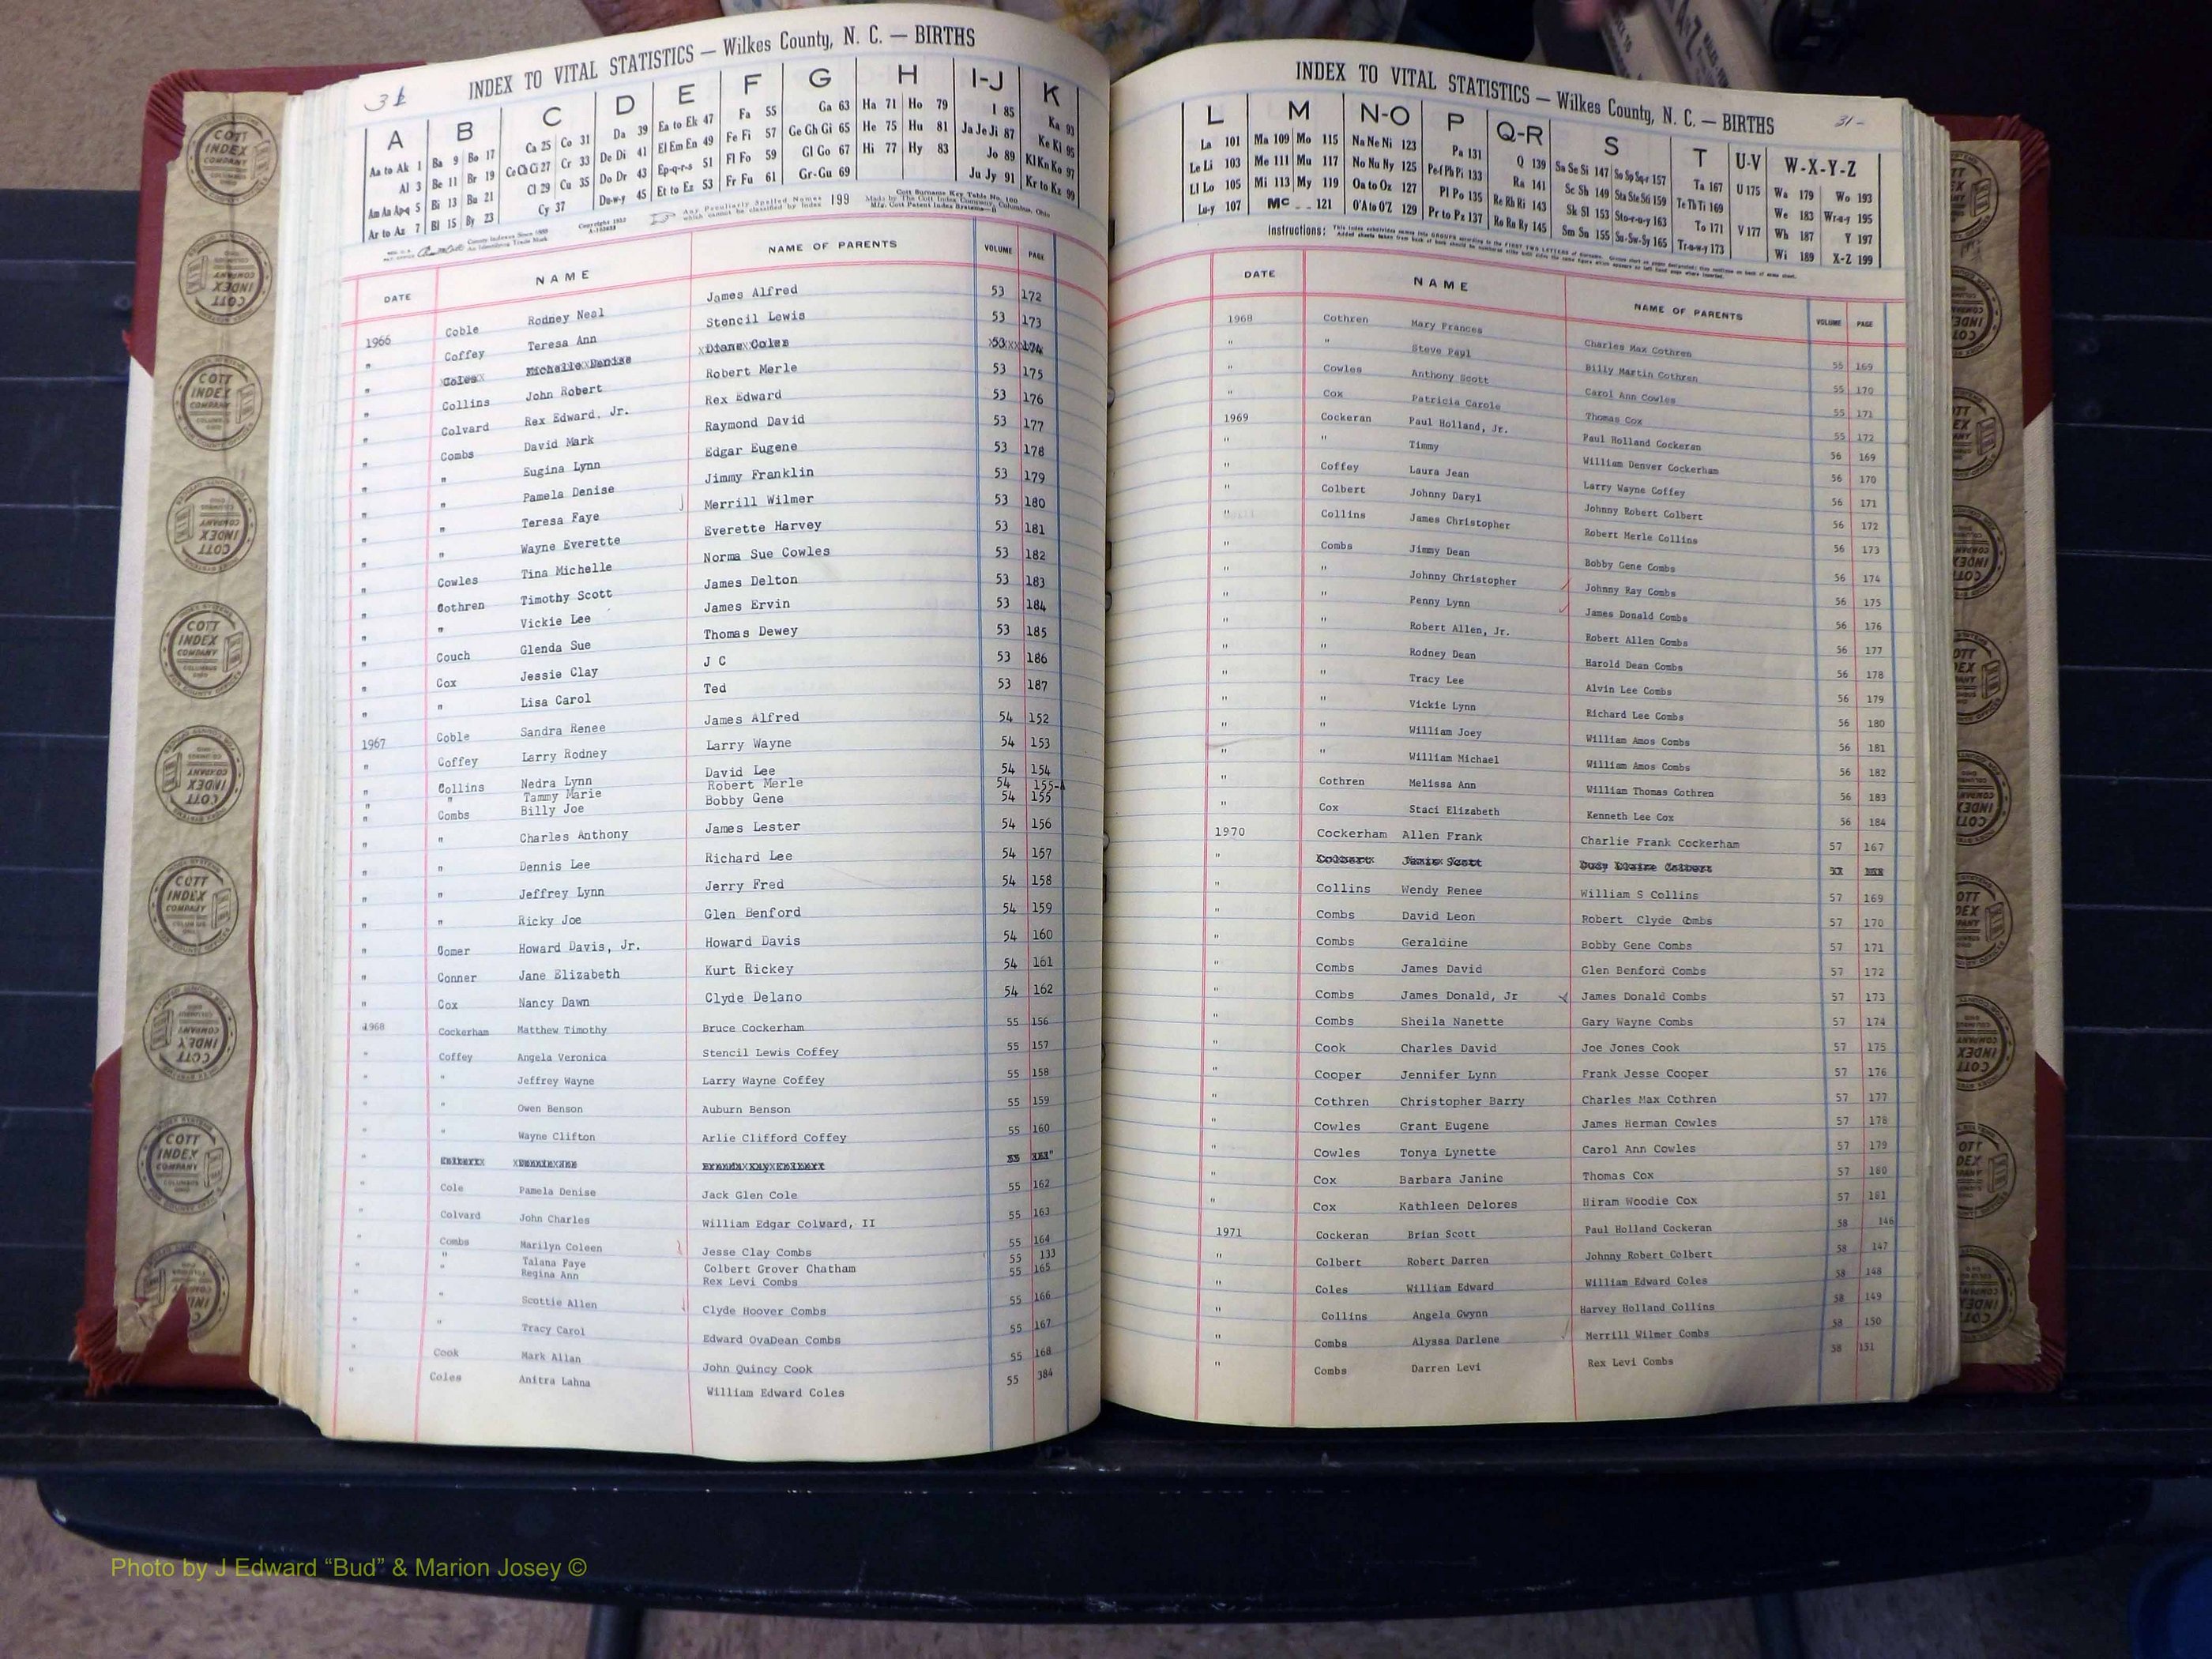 31
INDEX TO VITAL STATISTICS — Wilkes County, N. C. — BIRTHS
A B C D E F G H I-J K
Aa to Ak 1 Ba 9 Bo 17 Ca 25 Co 31 Da 39 Ea to Ek 47 Fa 55 Ga 63 Ha 71 Ho 79 I 85 Ka 93
Al 3 Be 11 Br 19 Ce Ch Ci 27 Cr 33 De Di 41 El Em En 49 Fe Fi 57 Ge Gh Gi 65 He 75 Hu 81 Ja Je Ji 87 Ke Ki 95
Am An Ap-q 5 Bi 13 Bu 21 Cl 29 Cu 35 Do Dr 43 Ep-q-r-s 51 Fl Fo 59 Gl Go 67 Hi 77 Hy 83 Jo 89 Kl Kn Ko 97
Ar to Az 7 Bl 15 By 23 Cy 37 Du-w-y 45 Et to Ez 53 Fr Fu 61 Gr-Gu 69 Ju Jy 91 Kr to Kz 99
Any Peculiarly Spelled Names which cannot be classified by Index 199
DATE NAME NAME OF PARENTS VOLUME PAGE
1966 Coble Rodney Neal James Alfred 53 172
" Coffey Teresa Ann Stencil Lewis 53 173
" Coles Michelle Denise Diane Coles 53 174
" Collins John Robert Robert Merle 53 175
" Colvard Rex Edward, Jr. Rex Edward 53 176
" Combs David Mark Raymond David 53 177
" " Eugina Lynn Edgar Eugene 53 178
" " Pamela Denise Jimmy Franklin 53 179
" " Teresa Faye Merrill Wilmer 53 180
" " Wayne Everette Everette Harvey 53 181
" Cowles Tina Michelle Norma Sue Cowles 53 182
" Cothren Timothy Scott James Delton 53 183
" " Vickie Lee James Ervin 53 184
" Couch Glenda Sue Thomas Dewey 53 185
" Cox Jessie Clay J C 53 186
" " Lisa Carol Ted 53 187
1967 Coble Sandra Renee James Alfred 54 152
" Coffey Larry Rodney Larry Wayne 54 153
" Collins Nedra Lynn David Lee 54 154
" " Tammy Marie Robert Merle 54 155-A
" Combs Billy Joe Bobby Gene 54 155
" " Charles Anthony James Lester 54 156
" " Dennis Lee Richard Lee 54 157
" " Jeffrey Lynn Jerry Fred 54 158
" " Ricky Joe Glen Benford 54 159
" Comer Howard Davis, Jr. Howard Davis 54 160
" Conner Jane Elizabeth Kurt Rickey 54 161
" Cox Nancy Dawn Clyde Delano 54 162
1968 Cockerham Matthew Timothy Bruce Cockerham 55 156
" Coffey Angela Veronica Stencil Lewis Coffey 55 157
" " Jeffrey Wayne Larry Wayne Coffey 55 158
" " Owen Benson Auburn Benson 55 159
" " Wayne Clifton Arlie Clifford Coffey 55 160
" Cole Pamela Denise Jack Glen Cole 55 162
" Colvard John Charles William Edgar Colvard, II 55 163
" Combs Marilyn Coleen Jesse Clay Combs 55 164
" Talana Faye Colbert Grover Chatham 55 133
" " Regina Ann Rex Levi Combs 55 165
" Scottie Allen Clyde Hoover Combs 55 166
" Tracy Carol Edward OvaDean Combs 55 167
" Cook Mark Allan John Quincy Cook 55 168
" Coles Anitra Lahna William Edward Coles 55 384
INDEX TO VITAL STATISTICS — Wilkes County, N. C. — BIRTHS
31-
L M N-O P Q-R S T U-V W-X-Y-Z
La 101 Ma 109 Mo 115 Na Ne Ni 123 Pa 131 Q 139 Sa Se Si 147 So Sp Sq-r 157 Ta 167 U 175 Wa 179 Wo 193
Le Li 103 Me 111 Mu 117 No Nu Ny 125 Pe-f Ph Pi 133 Ra 141 Sc Sh 149 Sta Ste Sti 159 Te Th Ti 169 We 183 Wr-a-y 195
Ll Lo 105 Mi 113 My 119 Oa to Oz 127 Pl Po 135 Re Rh Ri 143 Sk Sl 153 Sto-r-u-y 163 To 171 V 177 Wh 187 Y 197
Lu-y 107 Mc 121 O'A to O'Z 129 Pr to Pz 137 Ro Ru Ry 145 Sm Sn 155 Su-Sw-Sy 165 Tr-u-w-y 173 Wi 189 X-Z 199
Instructions:
DATE NAME NAME OF PARENTS VOLUME PAGE
1968 Cothren Mary Frances Charles Max Cothren 55 169
" " Steve Paul Billy Martin Cothren 55 170
" Cowles Anthony Scott Carol Ann Cowles 55 171
" Cox Patricia Carole Thomas Cox 55 172
1969 Cockeran Paul Holland, Jr. Paul Holland Cockeran 56 169
" " Timmy William Denver Cockerham 56 170
" Coffey Laura Jean Larry Wayne Coffey 56 171
" Colbert Johnny Daryl Johnny Robert Colbert 56 172
" Collins James Christopher Robert Merle Collins 56 173
" Combs Jimmy Dean Bobby Gene Combs 56 174
" " Johnny Christopher Johnny Ray Combs 56 175
" " Penny Lynn James Donald Combs 56 176
" " Robert Allen, Jr. Robert Allen Combs 56 177
" " Rodney Dean Harold Dean Combs 56 178
" " Tracy Lee Alvin Lee Combs 56 179
" " Vickie Lynn Richard Lee Combs 56 180
" " William Joey William Amos Combs 56 181
" " William Michael William Amos Combs 56 182
" Cothren Melissa Ann William Thomas Cothren 56 183
" Cox Staci Elizabeth Kenneth Lee Cox 56 184
1970 Cockerham Allen Frank Charlie Frank Cockerham 57 167
" Collins Wendy Renee William S Collins 57 169
" Combs David Leon Robert Clyde Combs 57 170
" Combs Geraldine Bobby Gene Combs 57 171
" Combs James David Glen Benford Combs 57 172
" Combs James Donald, Jr James Donald Combs 57 173
" Combs Sheila Nanette Gary Wayne Combs 57 174
" Cook Charles David Joe Jones Cook 57 175
" Cooper Jennifer Lynn Frank Jesse Cooper 57 176
" Cothren Christopher Barry Charles Max Cothren 57 177
" Cowles Grant Eugene James Herman Cowles 57 178
" Cowles Tonya Lynette Carol Ann Cowles 57 179
" Cox Barbara Janine Thomas Cox 57 180
" Cox Kathleen Delores Hiram Woodie Cox 57 181
1971 Cockeran Brian Scott Paul Holland Cockeran 58 146
" Colbert Robert Darren Johnny Robert Colbert 58 147
" Coles William Edward William Edward Coles 58 148
" Collins Angela Gwynn Harvey Holland Collins 58 149
" Combs Alyssa Darlene Merrill Wilmer Combs 58 150
" Combs Darren Levi Rex Levi Combs 58 151
COTT INDEX COMPANY
Photo by J Edward “Bud” & Marion Josey ©